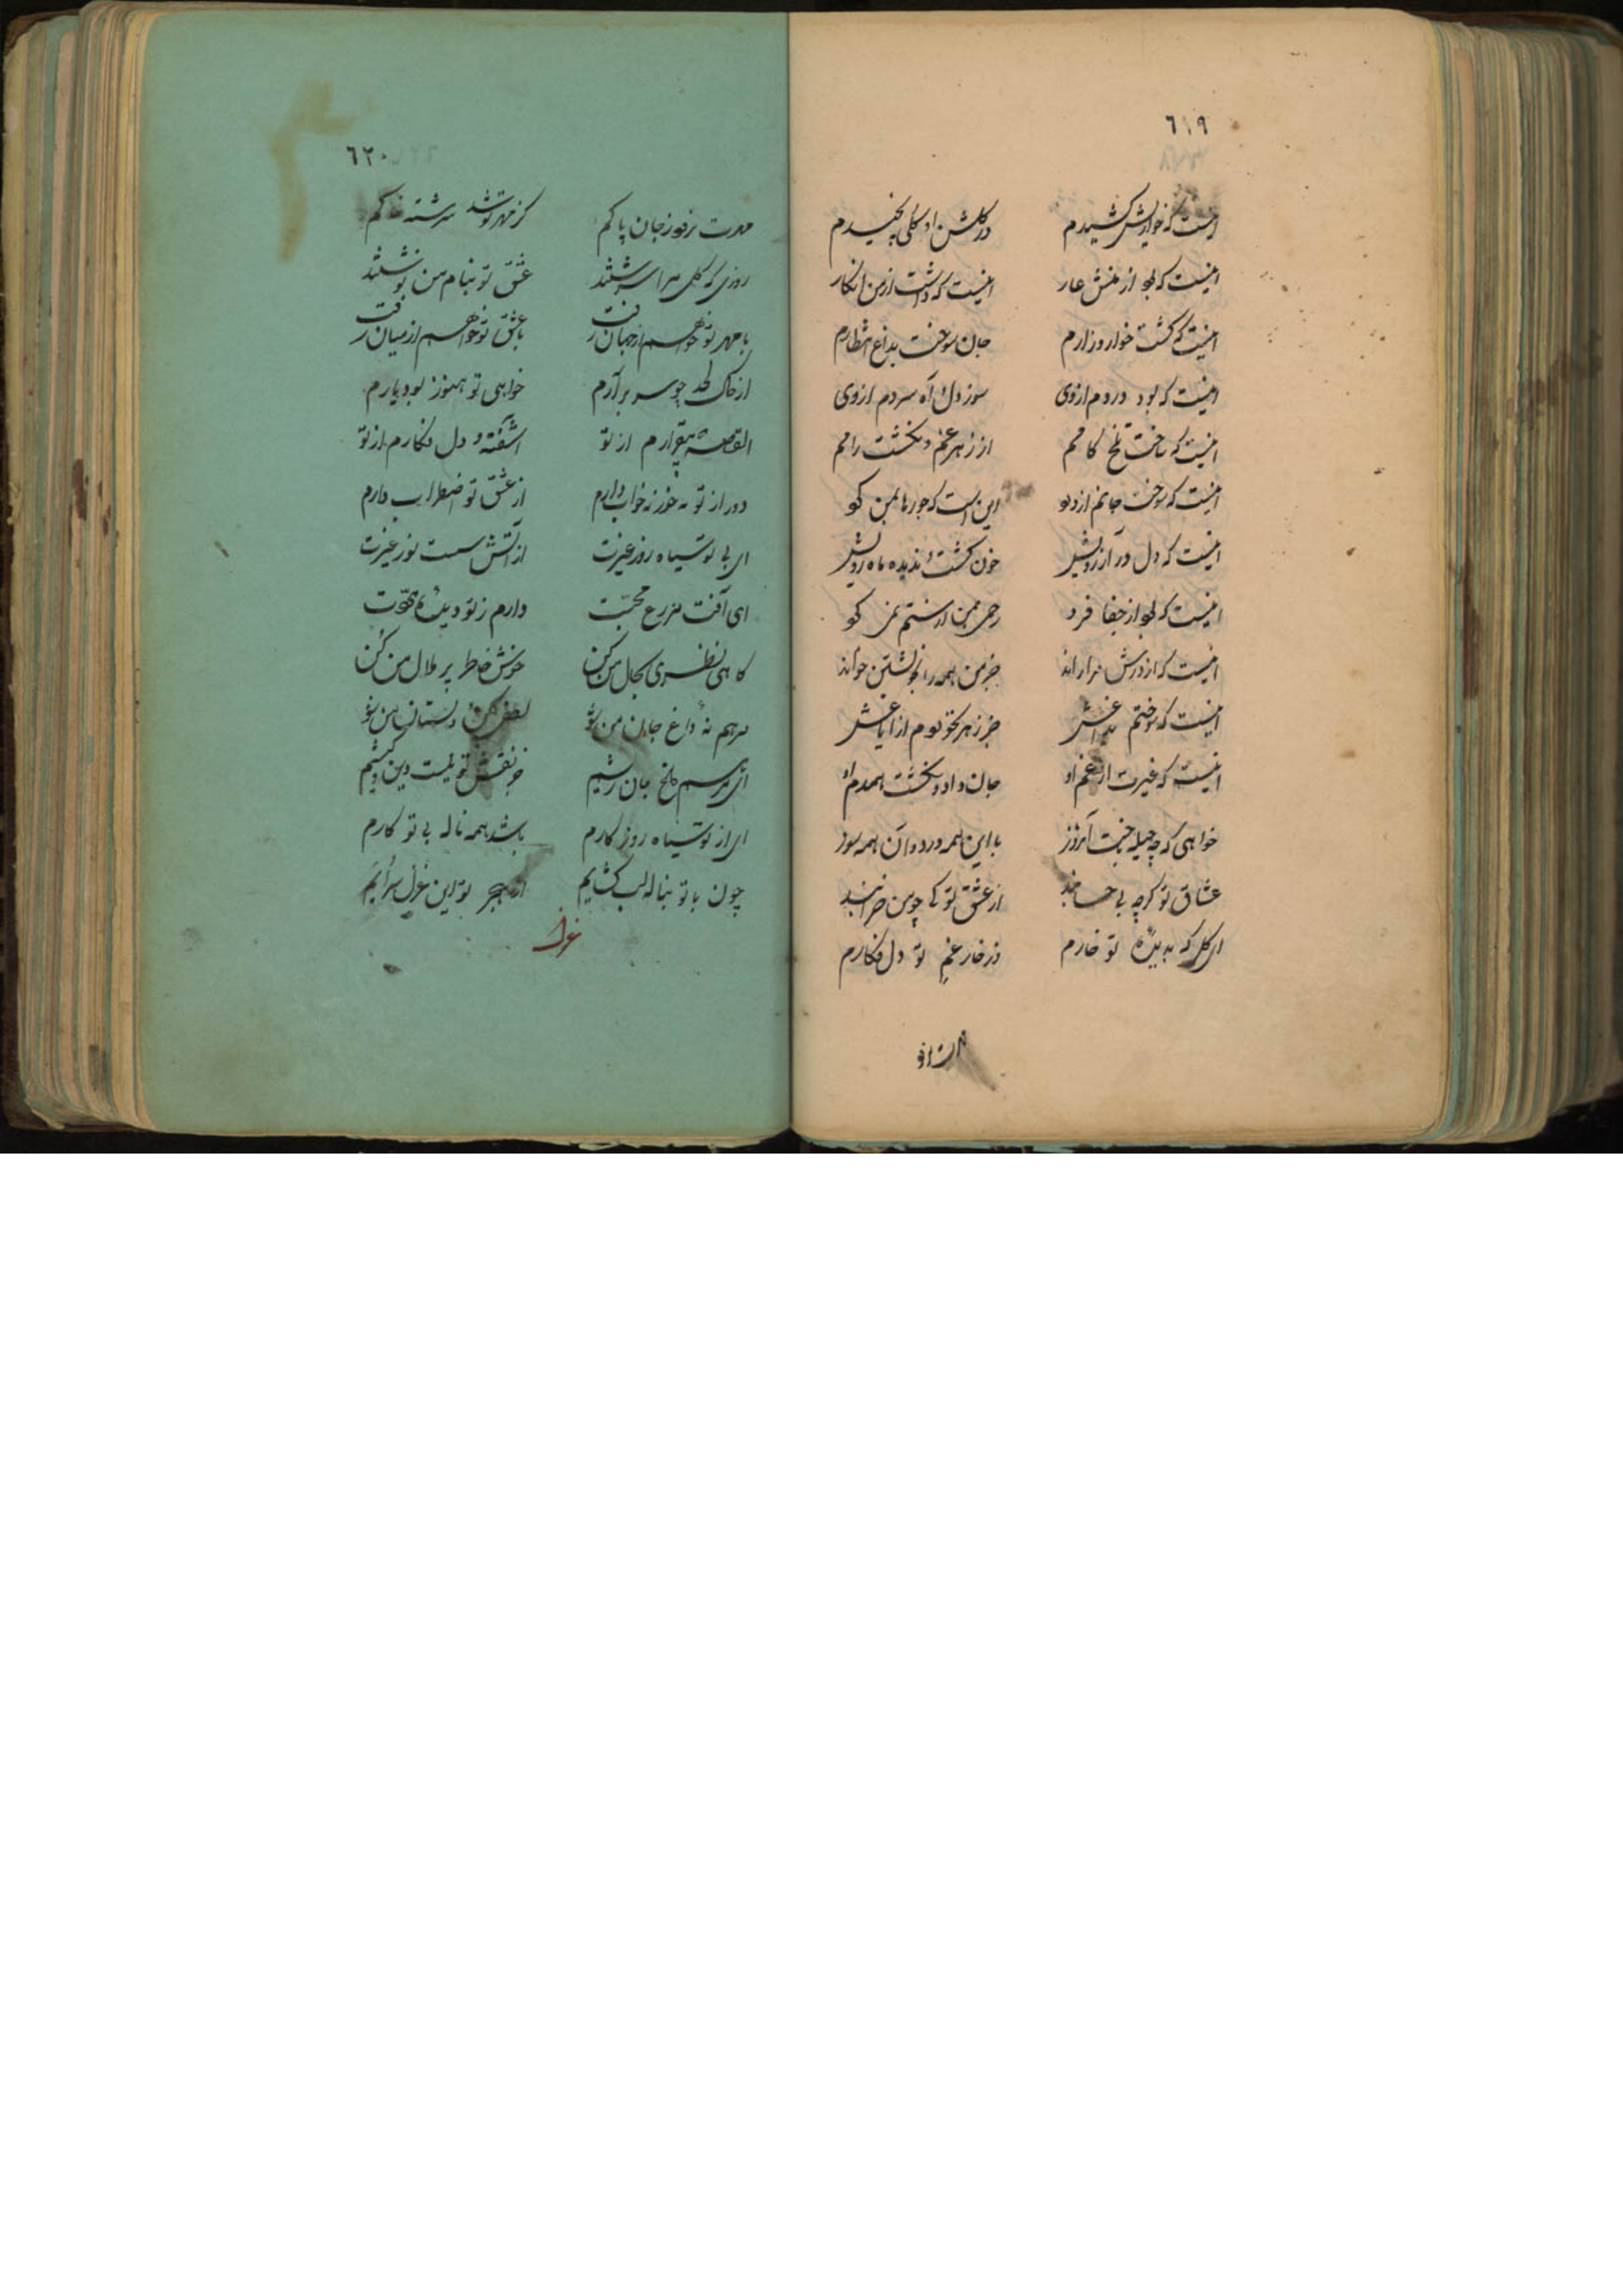 ٦١٩
اینست که خواریش کشیدم در گلشن او گلی نچیدم
اینست که بود از منش عار اینست که داشت از من انکار
اینست که گشت خوار و زارم جان سوخت بداغ انتظارم
اینست که بود دردم ازوی سوز دل و آه سردم ازوی
اینست که ساخت تلخ کامم از زهر غم و نگشت رامم
اینست که سوخت جانم از دو این است که جورها بمن کو
اینست که دل در آرزویش خون گشت ندیده ماه رویش
اینست که بود از جفا فرد رحمی بمن از ستم نمی کو
اینست که از درش مرا راند جز من همه را بخویشتن خواند
اینست که سوختم بداغش جز زهر نخوردم از ایاغش
اینست که غیرت از غم او جان داد و نگشت همدم او
خواهی که چه حیله جست آنروز با این همه درد و آن همه سوز
عشاق تو گرچه بی حسابند از عشق تو کی چو من خرابند
ای گل که بدیده تو خارم وز خار غم تو دل فکارم
٦٢٠
مهرت نرود ز جان پاکم کز مهر تو شد سرشته خاکم
روزی که گل مرا سرشتند عشق تو بنام من نوشتند
با مهر تو خواهم از جهان رفت با عشق تو خواهم از میان رفت
از خاک لحد چو سر برآرم خواهی تو هنوز بود یارم
القصه بیقرارم از تو آشفته و دل فکارم از تو
دور از تو نه خور نه خواب دارم از عشق تو اضطراب دارم
ای بی تو سیاه روز غیرت از آتش تست سوز غیرت
ای آفت مزرع محبت دارم ز تو دیده
گاهی نظری بحال من کن خوش خاطر پر ملال من کن
مرهم نه داغ جان من شو لطفی کن و دلستان من شو
ای مرهم جان ریشم جز نقش تو نیست دین و کیشم
ای از تو سیاه روزگارم باشد همه ناله بی تو کارم
چون با تو بناله لب گشایم از هجر تو این غزل سرایم
غزل